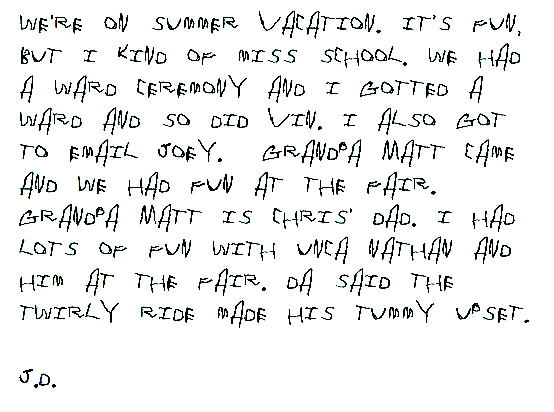 WE'RE ON SUMMER VACATION. IT'S FUN,
BUT I KIND OF MISS SCHOOL. WE HAD
A WARD CEREMONY AND I GOTTED A
WARD AND SO DID VIN. I ALSO GOT
TO EMAIL JOEY. GRANDPA MATT CAME
AND WE HAD FUN AT THE FAIR.
GRANDPA MATT IS CHRIS' DAD. I HAD
LOTS OF FUN WITH UNCA NATHAN AND
HIM AT THE FAIR. DA SAID THE
TWIRLY RIDE MADE HIS TUMMY UPSET.
J.D.